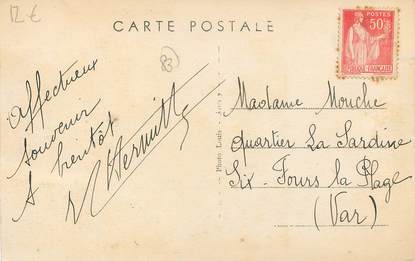 12 €
CARTE POSTALE
POSTES
50c
83
Affectueux
souvenir
A bientôt
Madame Mouche
Quartier La Sardine
Six-Fours la Plage
(Var)
Photo Louis